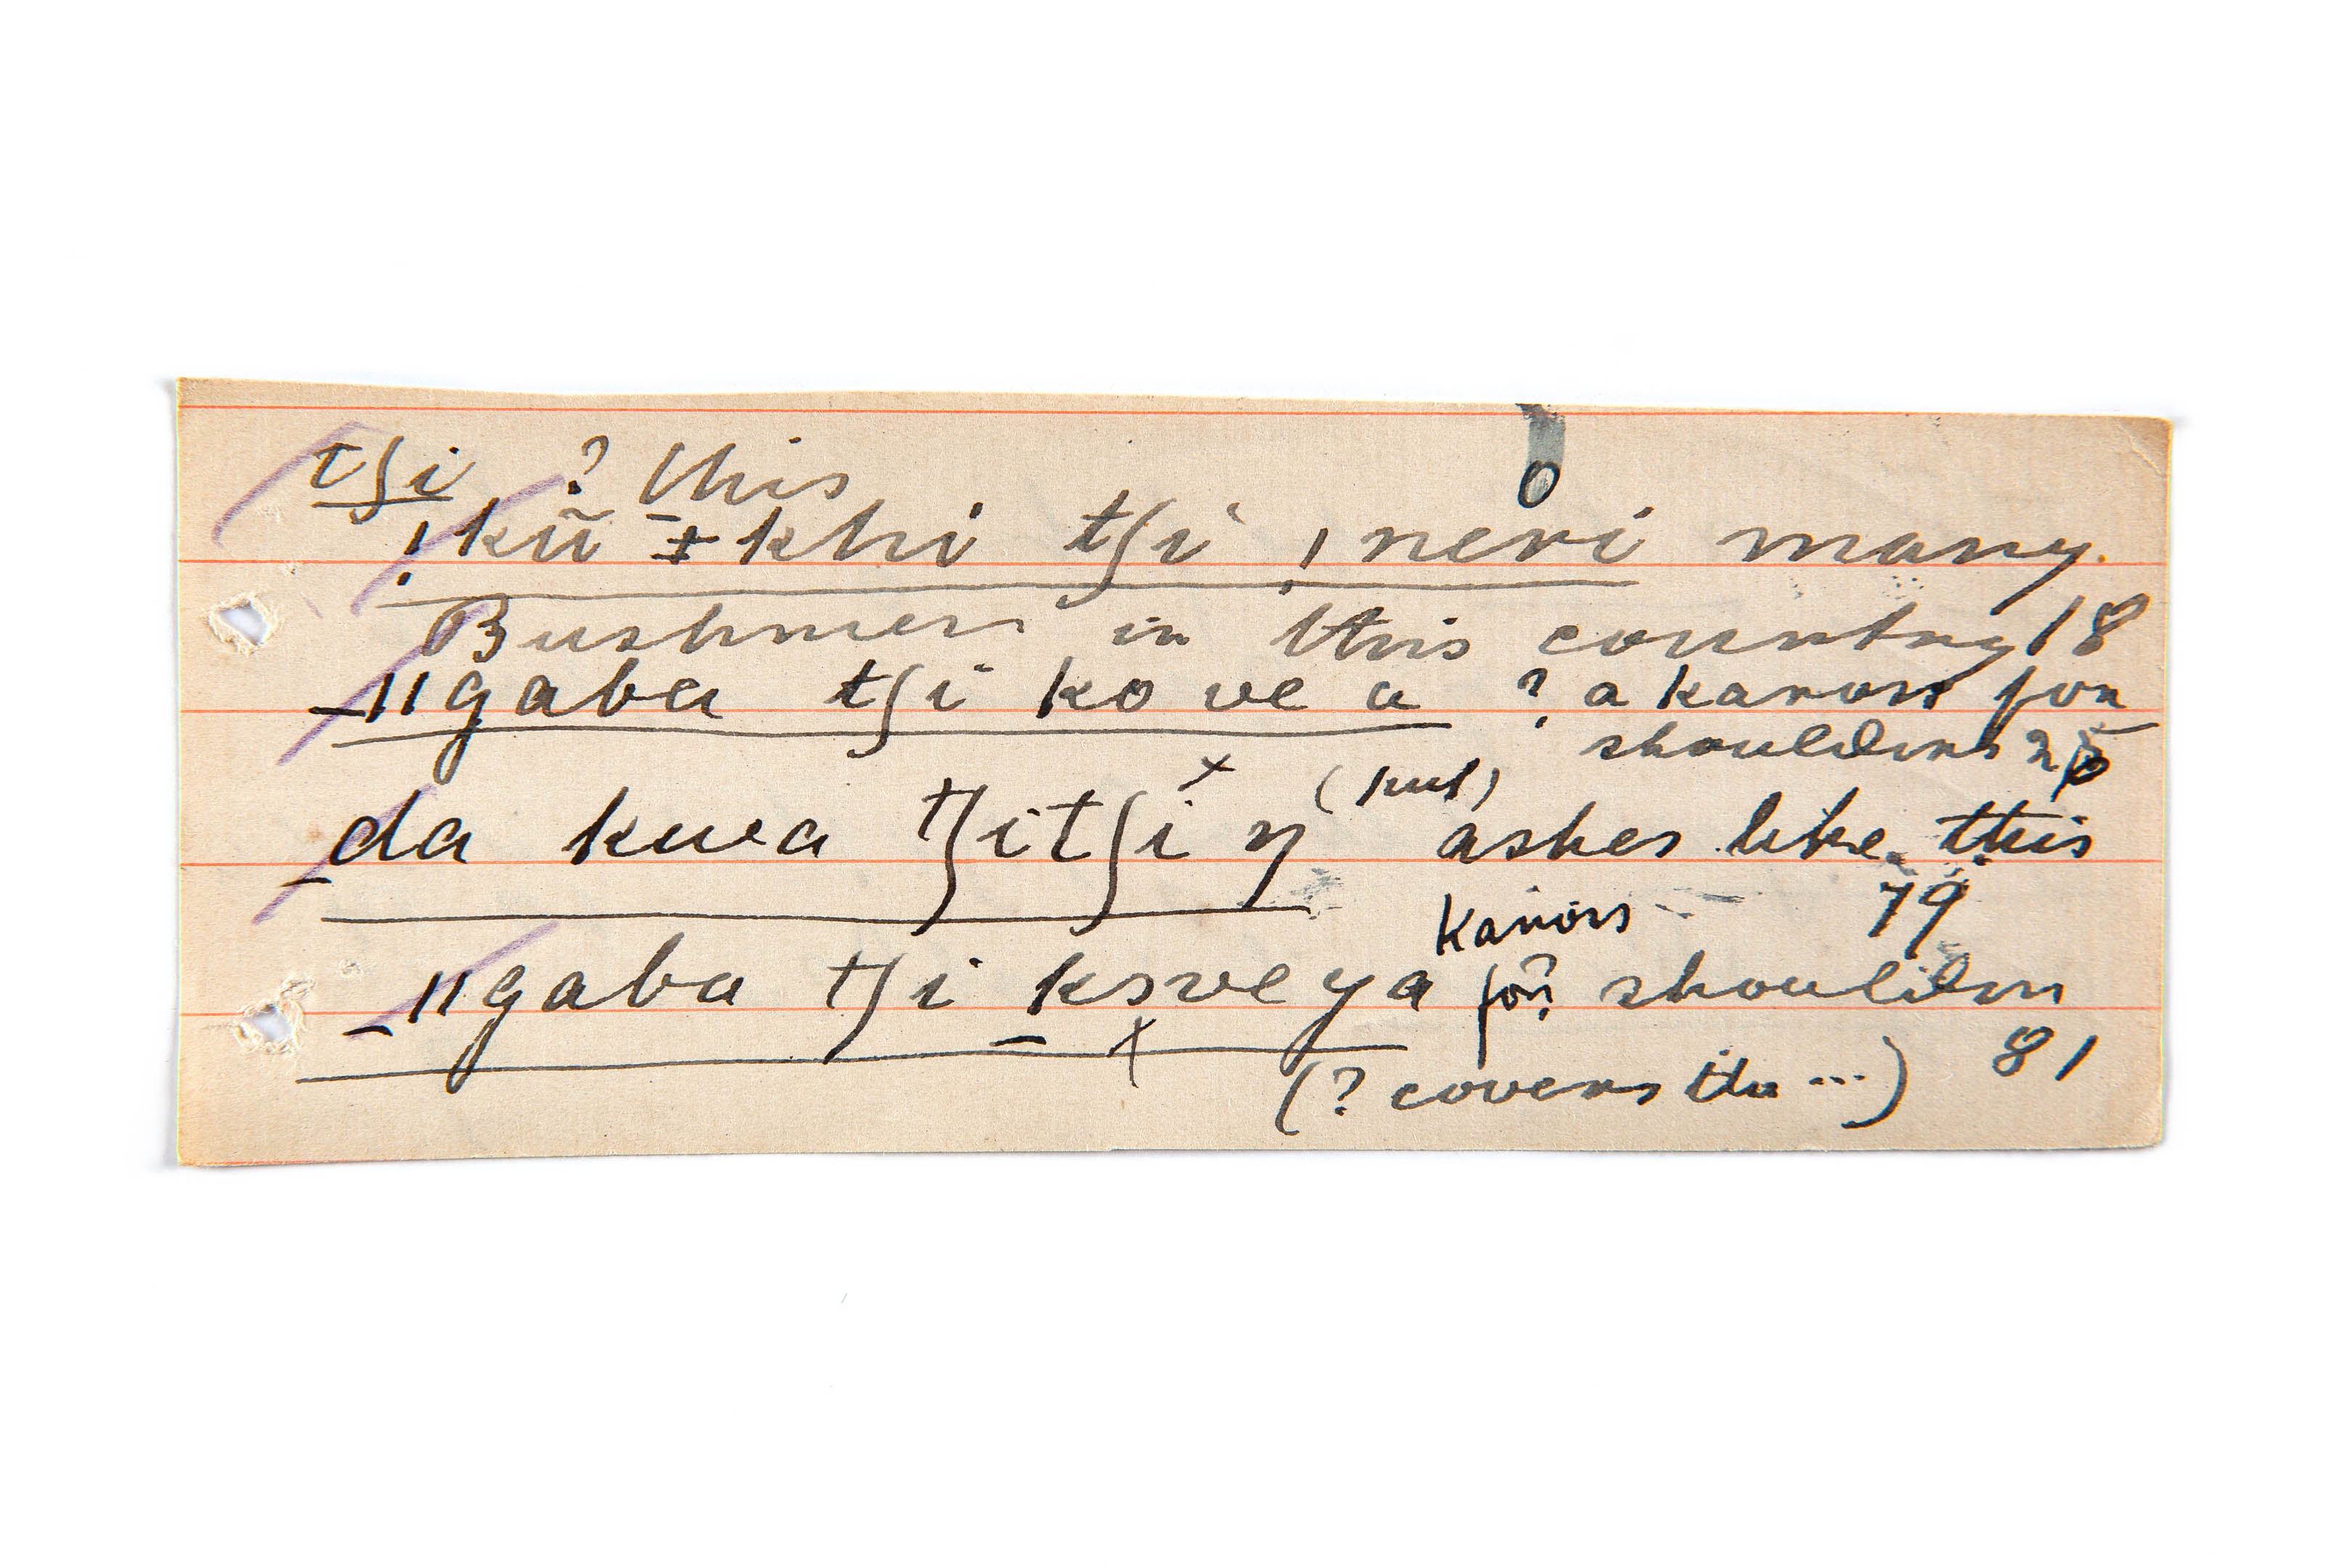 tʃi ? this
!kũ ‡khi tʃi ǀneri many
Bushmen in this country 18
_ǁgaba tʃi ko ve a ? a kaross for
shoulders
_da kwa tʃitʃi ŋ (put) ashes like this
79
kaross
_ǁgaba tʃi _kɔve ya for? shoulders
81
(? covers the ...)